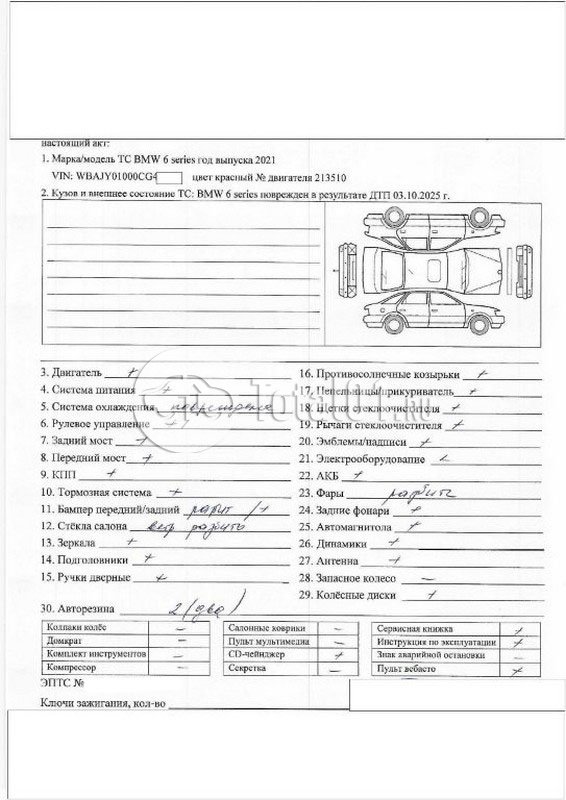 настоящий акт:
1. Марка/модель ТС BMW 6 series год выпуска 2021
VIN: WBAJY01000CG4 цвет красный № двигателя 213510
2. Кузов и внешнее состояние ТС: BMW 6 series поврежден в результате ДТП 03.10.2025 г.
3. Двигатель +
4. Система питания +
5. Система охлаждения повреждена
6. Рулевое управление +
7. Задний мост +
8. Передний мост +
9. КПП +
10. Тормозная система +
11. Бампер передний/задний разбит / +
12. Стёкла салона ветр разбито
13. Зеркала +
14. Подголовники +
15. Ручки дверные +
16. Противосолнечные козырьки +
17. Пепельницы/прикуриватель +
18. Щетки стеклоочистителя +
19. Рычаги стеклоочистителя +
20. Эмблемы/надписи +
21. Электрооборудование
22. АКБ +
23. Фары разбиты
24. Задние фонари +
25. Автомагнитола +
26. Динамики +
27. Антенна +
28. Запасное колесо –
29. Колёсные диски +
30. Авторезина 2 (два)
Колпаки колёс –
Домкрат –
Комплект инструментов –
Компрессор –
Салонные коврики –
Пульт мультимедиа –
CD-чейнджер +
Секретка –
Сервисная книжка +
Инструкция по эксплуатации +
Знак аварийной остановки –
Пульт вебасто +
ЭПТС №
Ключи зажигания, кол-во
Total01.ru